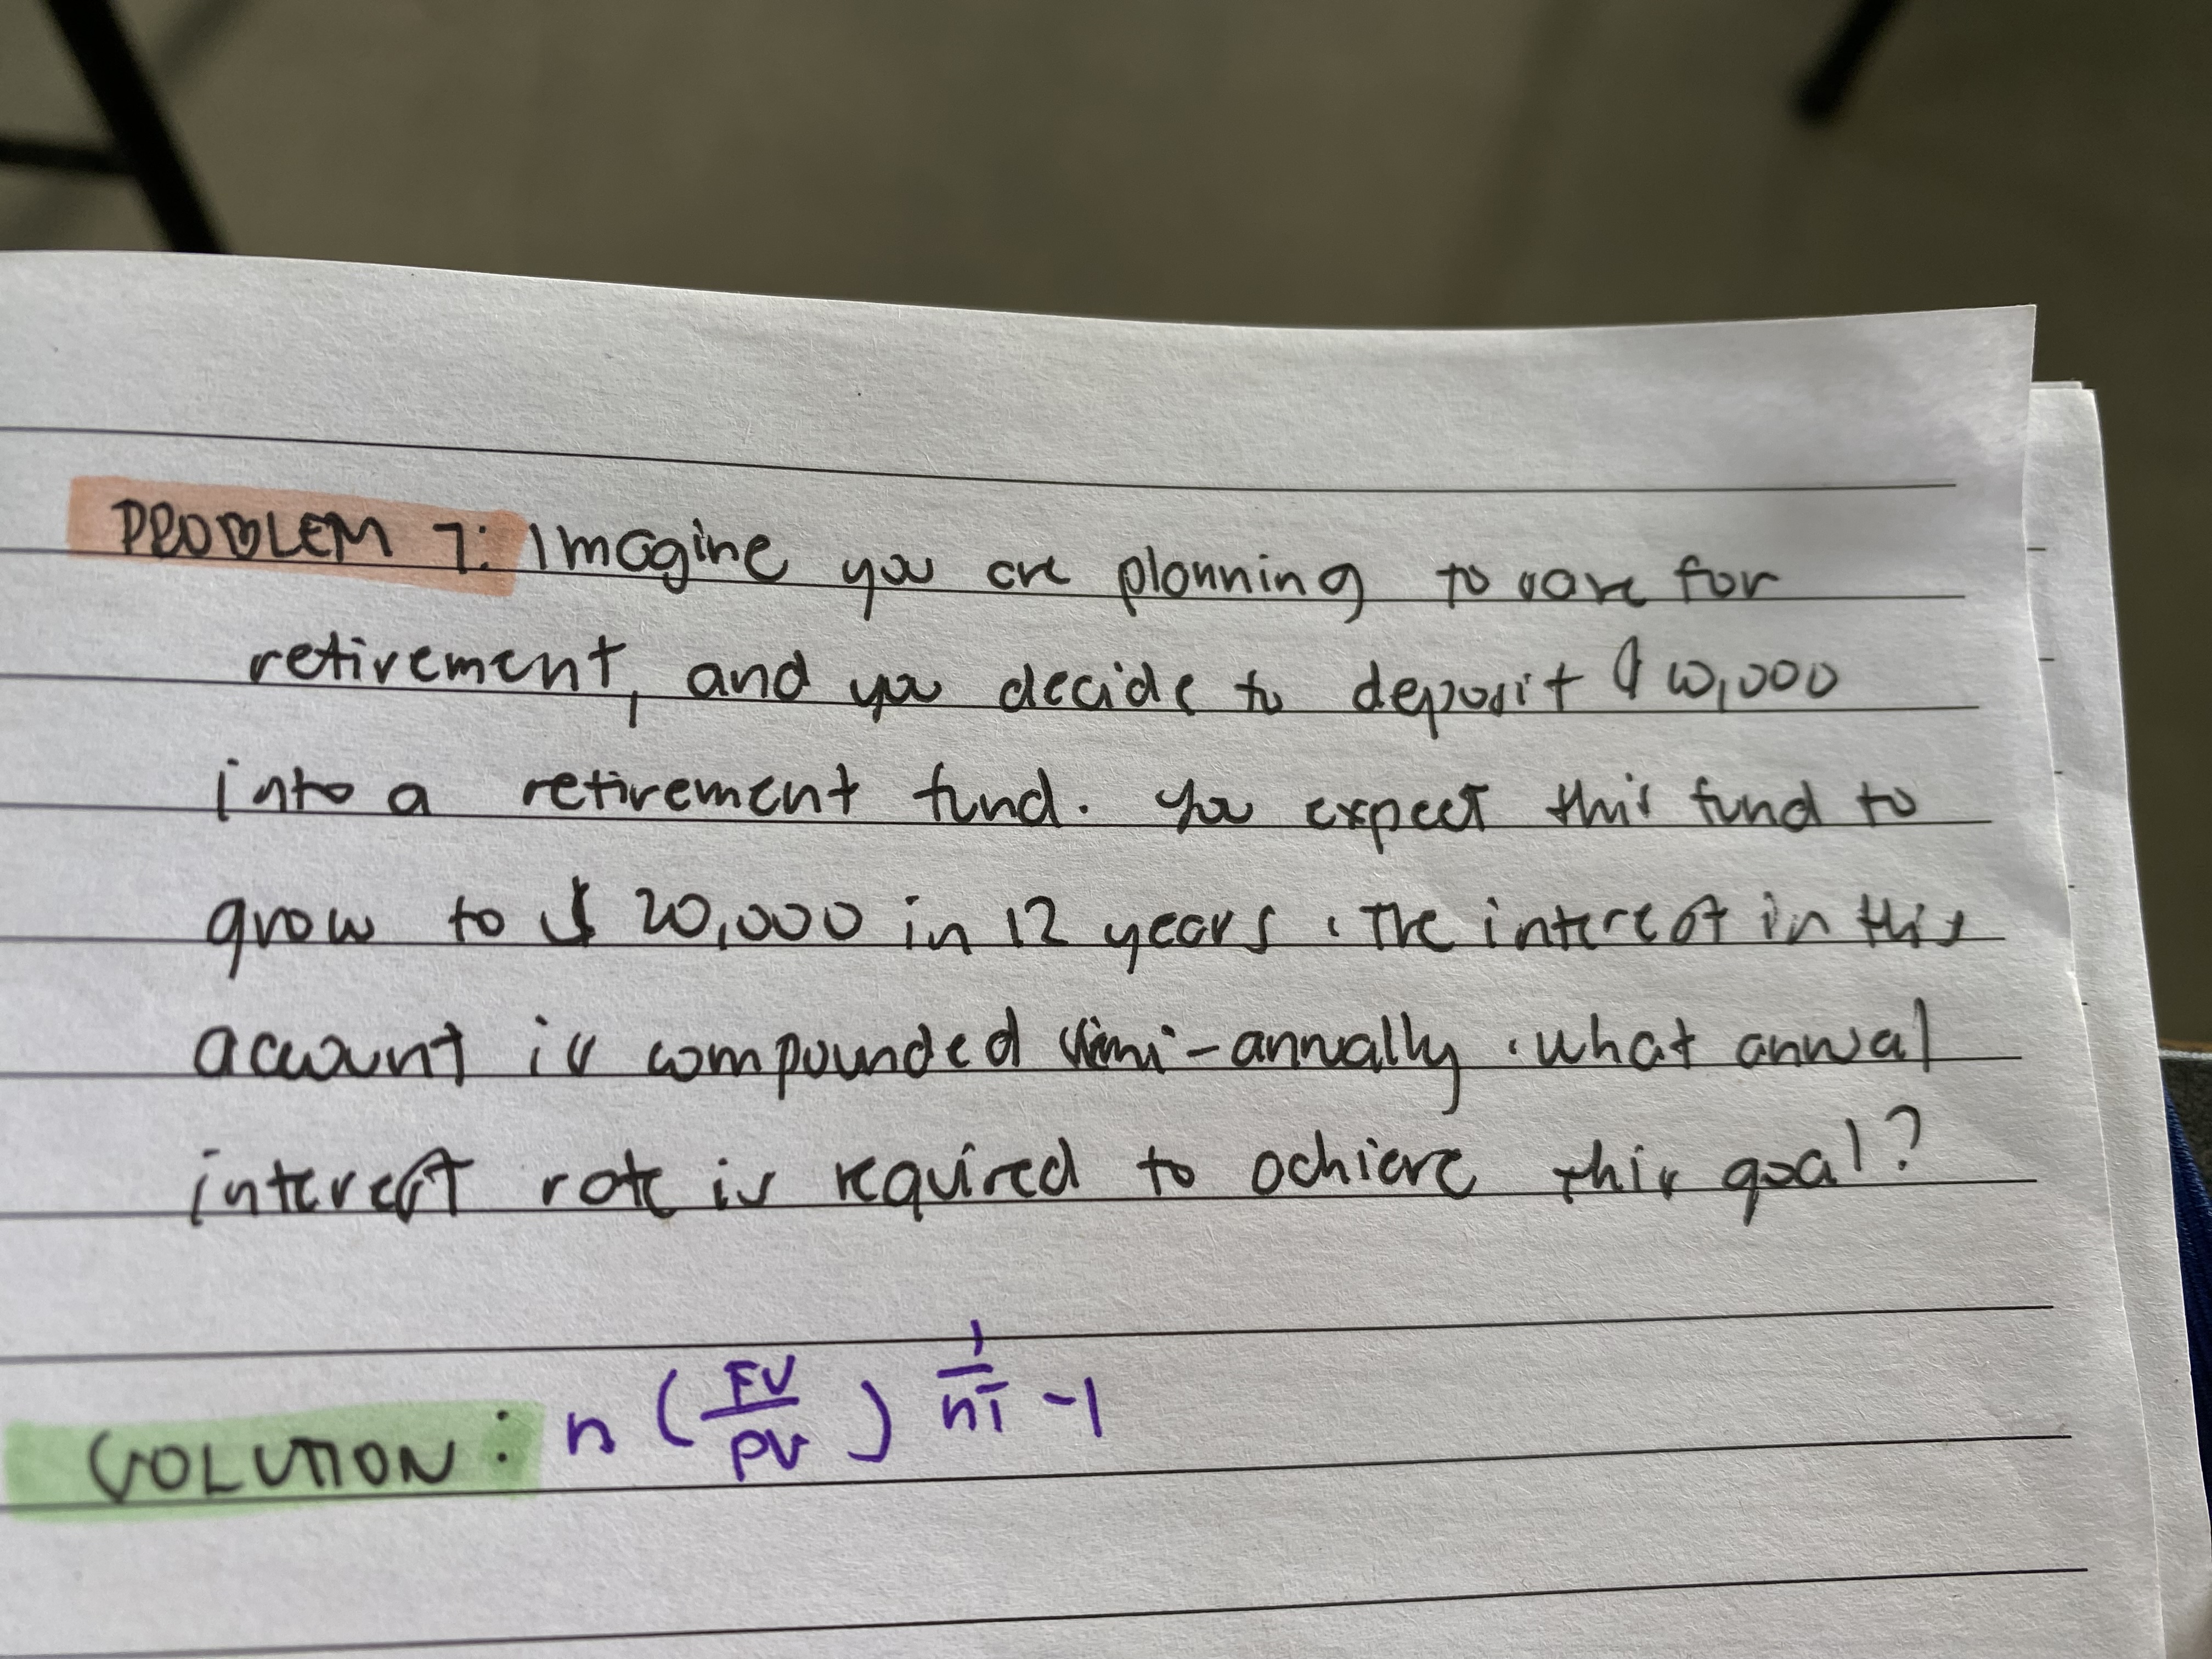 PROBLEM 7: Imagine you are planning to save for
retirement, and you decide to deposit $ 10,000
into a retirement fund. You expect this fund to
grow to $ 20,000 in 12 years. The interest in this
account is compounded simi-annually. What annual
interest rate is required to achieve this goal?
SOLUTION: n (FV/PV)^1/nT -1